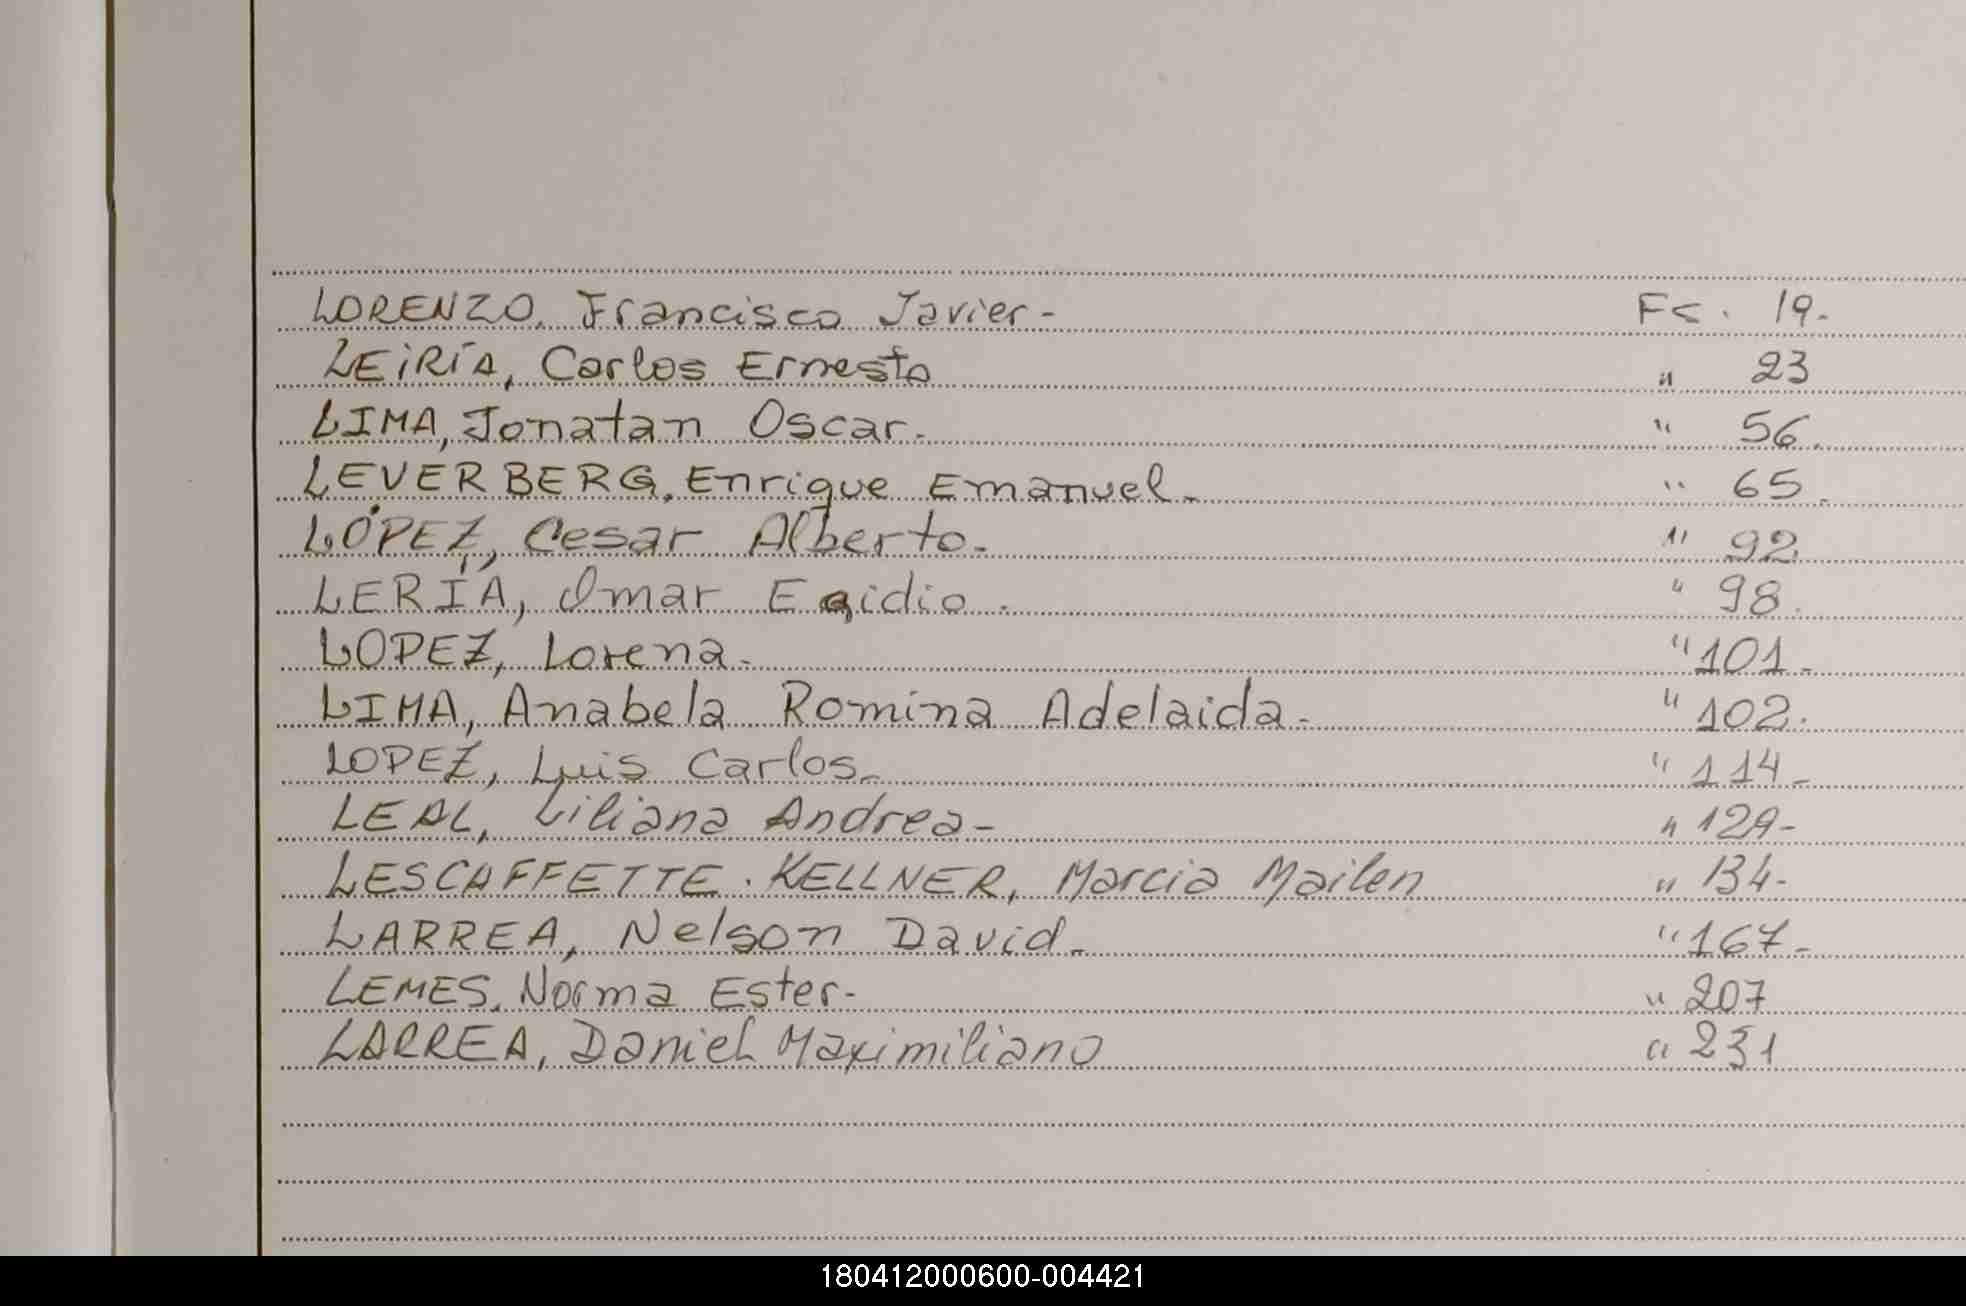 LORENZO, Francisco Javier - Fs. 19.-
LEIRÍA, Carlos Ernesto " 23
LIMA, Jonatan Oscar.- " 56.
LEVERBERG, Enrique Emanuel.- " 65.
LÓPEZ, Cesar Alberto.- " 92
LERÍA, Omar Egidio.- " 98.
LOPEZ, Lorena.- " 101.-
LIMA, Anabela Romina Adelaida.- " 102.
LOPEZ, Luis Carlos.- " 114.-
LEAL, Liliana Andrea- " 129-
LESCAFFETTE. KELLNER, Marcia Mailen " 134-
LARREA, Nelson David.- " 167.-
LEMES, Norma Ester- " 207
LARREA, Daniel Maximiliano " 231
180412000600-004421